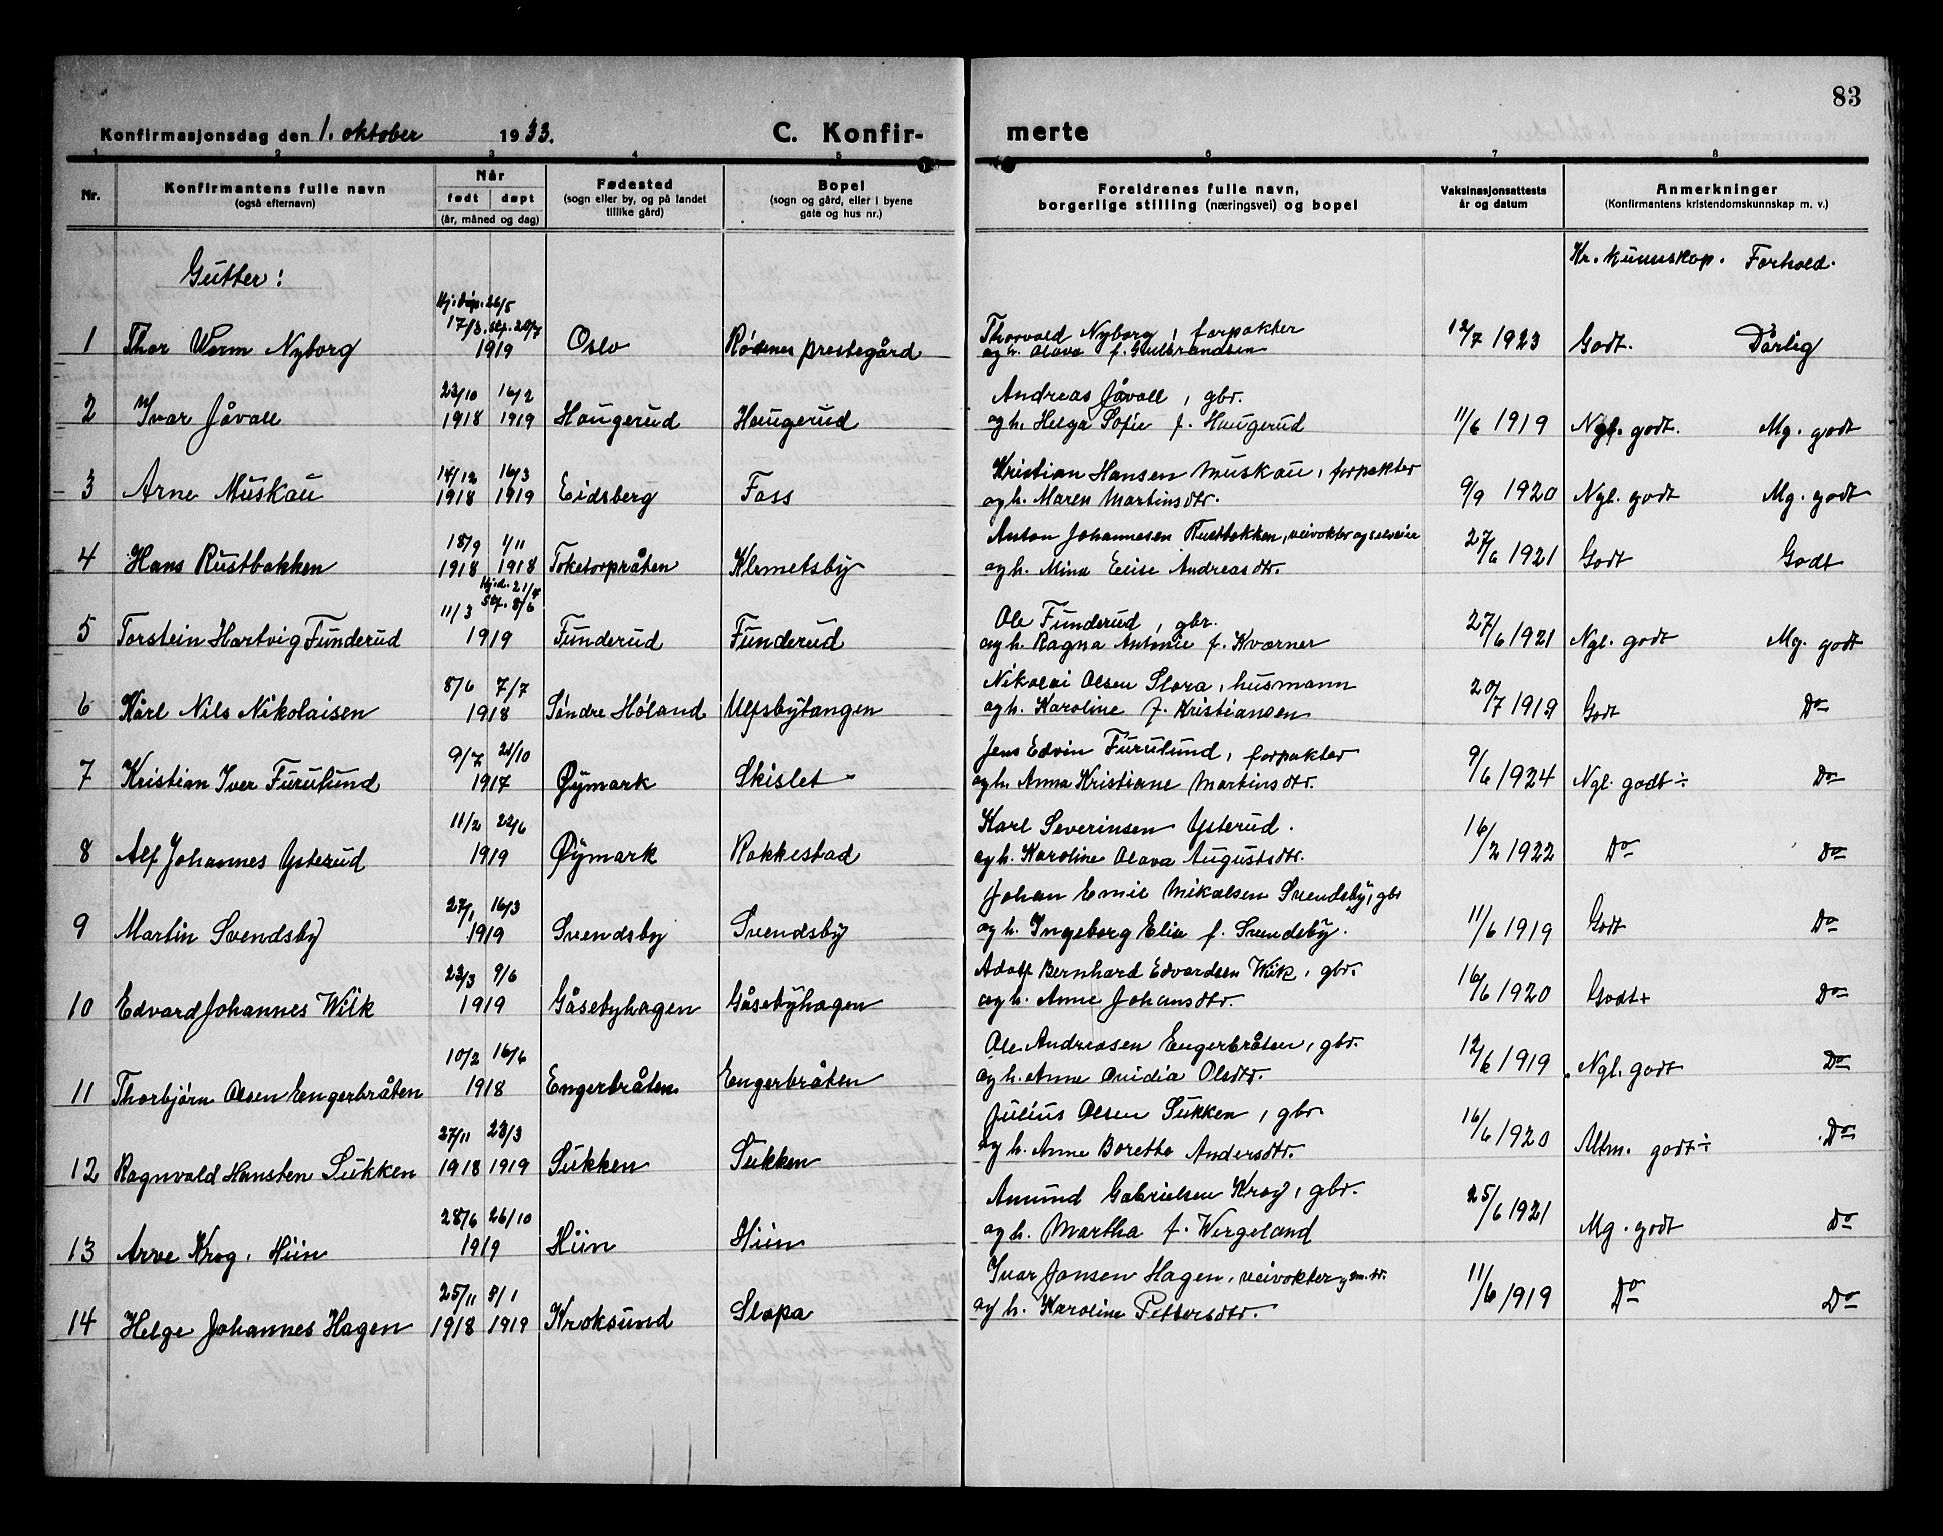 83
Konfirmasjonsdag den 1. oktober 1933. C. Konfir- merte
1 2 3 4 5 6 7 8
Nr. Konfirmantens fulle navn (også efternavn) Når født døpt (år, måned og dag) Fødested (sogn eller by, og på landet tillike gård) Bopel (sogn og gård, eller i byene gate og hus nr.) Foreldrenes fulle navn, borgerlige stilling (næringsvei) og bopel Vaksinasjonsattests år og datum Anmerkninger (Konfirmantens kristendomskunnskap m. v.)
Gutter: Kr. kunnskap. Forhold.
Hj.døp. 26/5
17/3. stf. 20/7 Thorvald Nyborg, forpakter
1 Thor Werm Nyborg 1919 Oslo Rødenes prestegård og h. Olava f. Gulbrandsen 12/7 1923 Godt. Dårlig
23/10 16/2 Andreas Jåvall, gbr.
2 Ivar Jåvall 1918 1919 Haugerud Haugerud og h. Helga Sofie f. Haugerud 11/6 1919 Ngl. godt. Mg. godt
14/12 16/3 Kristian Hansen Muskau, forpakter
3 Arne Muskau 1918 1919 Eidsberg Foss og h. Maren Martinsdtr. 9/9 1920 Ngl. godt Mg. godt
18/9 1/11 Anton Johannesen Rustbakken, veivokter og selveier
4 Hans Rustbakken 1918 1918 Toketorpråten Klemetsby og h. Mina Elise Andreasdtr. 27/6 1921 Godt Godt
Hj.d. 21/4
11/3 Stf. 8/6 Ole Funderud, gbr.
5 Torstein Hartvig Funderud 1919 Funderud Funderud og h. Ragna Antonie f. Kværner 27/6 1921 Ngl. godt Mg. godt
8/6 7/7 Nikolai Olsen Slora, husmann
6 Kårl Nils Nikolaisen 1918 Søndre Høland Ulfsbytangen og h. Karoline f. Kristiansen 20/7 1919 Godt Do
9/7 21/10 Jens Edvin Furulund, forpakter
7 Kristian Iver Furulund 1917 Øymark Skislet og h. Anna Kristiane Martinsdtr. 9/6 1924 Ngl. godt ÷ Do
11/2 22/6 Karl Severinsen Ysterud.
8 Alf Johannes Ysterud 1919 Øymark Rakkestad og h. Karoline Olava Augustsdtr. 16/2 1922 Do Do
27/1 16/3 Johan Emil Mikalsen Svendsby, gbr
9 Martin Svendsby 1919 Svendsby Svendsby og h. Ingeborg Elia f. Svendsby. 11/6 1919 Godt Do
23/3 9/6 Adolf Bernhard Edvardsen Wiik, gbr.
10 Edvard Johannes Wiik 1919 Gåsebyhagen Gåsebyhagen og h. Anne Johansdtr. 16/6 1920 Godt+ Do
10/2 16/6 Ole Andreasen Engerbråten, gbr.
11 Thorbjørn Olsen Engerbråten 1918 Engerbråten Engerbråten og h. Anne Ovidia Olsdtr. 12/6 1919 Ngl. godt Do
27/11 23/3 Julius Olsen Sukken, gbr
12 Ragnvald Hansten Sukken 1918 1919 Sukken Sukken og h. Anne Borette Andersdtr. 16/6 1920 Altm. godt ÷ Do
28/6 26/10 Amund Gabrielsen Krog, gbr.
13 Arve Krog, Hiin 1919 Hiin Hiin og h. Martha f. Wergeland 25/6 1921 Mg. godt Do
25/11 8/1 Ivar Jansen Hagen, veivokter
14 Helge Johannes Hagen 1918 1919 Kroksund Slopa og h. Karoline Pettersdtr. 11/6 1919 Do Do